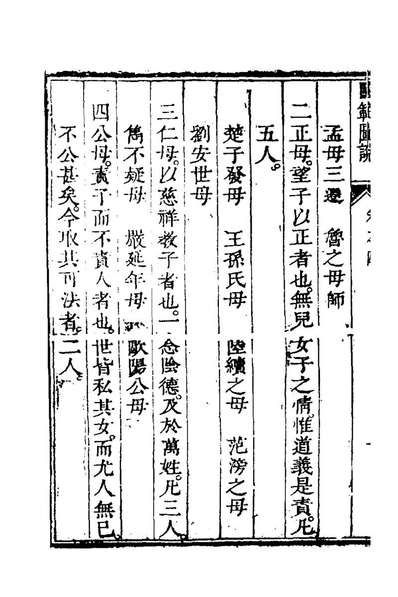 閨範圖說
卷之四
孟母三遷　魯之母師
二正母。望子以正者也。無兒女子之情惟道義是責。凡
五人。
楚子發母　王孫氏母　陸續之母　范滂之母
劉安世母
三仁母。以慈祥教子者也。一念陰德。及於萬姓。凡三人
雋不疑母　嚴延年母　歐陽公母
四公母。責子而不責人者也。世皆私其女。而尤人無已
不公甚矣。今取其可法者。二人。